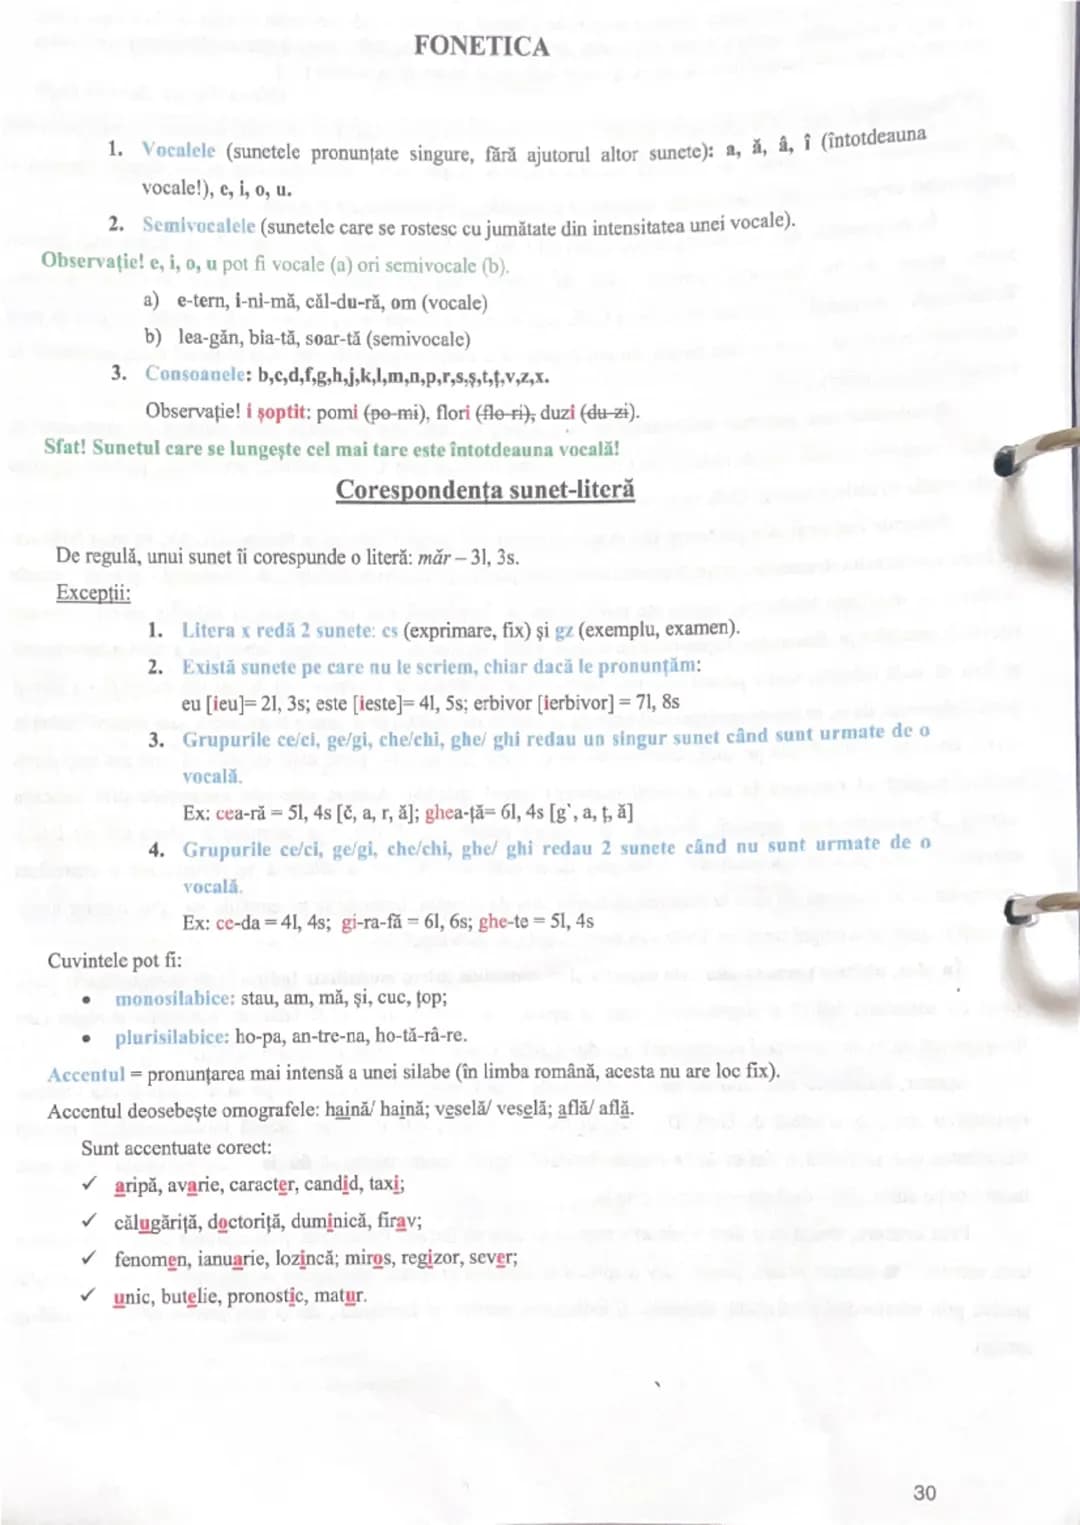 FONETICA
1. Vocalele (sunetele pronunțate singure, fără ajutorul altor sunete): a, ă, â, î (întotdeauna
vocale!), e, i, o, u.
2. Semivocalele (sunetele care se rostesc cu jumătate din intensitatea unei vocale).
Observație! e, i, o, u pot fi vocale (a) ori semivocale (b).
a) e-tern, i-ni-mă, căl-du-ră, om (vocale)
b) lea-găn, bia-tă, soar-tă (semivocale)
3. Consoanele: b,c,d,f,g,h,j,k,l,m,n,p,r,s,ș,t,ț,v,z,x.
Observație! i șoptit: pomi (po-mi), flori (flo-ri), duzi (du-zi).
Sfat! Sunetul care se lungește cel mai tare este întotdeauna vocală!
Corespondența sunet-literă
De regulă, unui sunet îi corespunde o literă: măr – 3l, 3s.
Excepții:
1. Litera x redă 2 sunete: cs (exprimare, fix) și gz (exemplu, examen).
2. Există sunete pe care nu le scriem, chiar dacă le pronunțăm:
eu [ieu]= 2l, 3s; este [ieste]= 4l, 5s; erbivor [ierbivor] = 7l, 8s
3. Grupurile ce/ci, ge/gi, che/chi, ghe/ ghi redau un singur sunet când sunt urmate de o
vocală.
Ex: cea-ră = 5l, 4s [č, a, r, ă]; ghea-ță= 6l, 4s [g`, a, ț, ă]
4. Grupurile ce/ci, ge/gi, che/chi, ghe/ ghi redau 2 sunete când nu sunt urmate de o
vocală.
Ex: ce-da = 4l, 4s; gi-ra-fă = 6l, 6s; ghe-te = 5l, 4s
Cuvintele pot fi:
• monosilabice: stau, am, mă, și, cuc, țop;
• plurisilabice: ho-pa, an-tre-na, ho-tă-râ-re.
Accentul = pronunțarea mai intensă a unei silabe (în limba română, acesta nu are loc fix).
Accentul deosebește omografele: haină/ haină; veselă/ veselă; află/ află.
Sunt accentuate corect:
✓ aripă, avarie, caracter, candid, taxi;
✓ călugăriță, doctoriță, duminică, firav;
✓ fenomen, ianuarie, lozincă; miros, regizor, sever;
✓ unic, butelie, pronostic, matur.
30